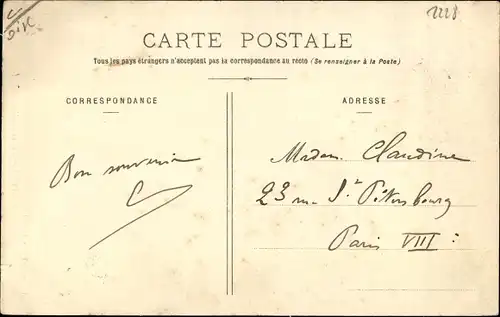 2228
CARTE POSTALE
Tous les pays étrangers n'acceptent pas la correspondance au recto (Se renseigner à la Poste)
CORRESPONDANCE
ADRESSE
Bon souvenir
Madam. Claudine
23 rue St Pétersbourg
Paris VIII :